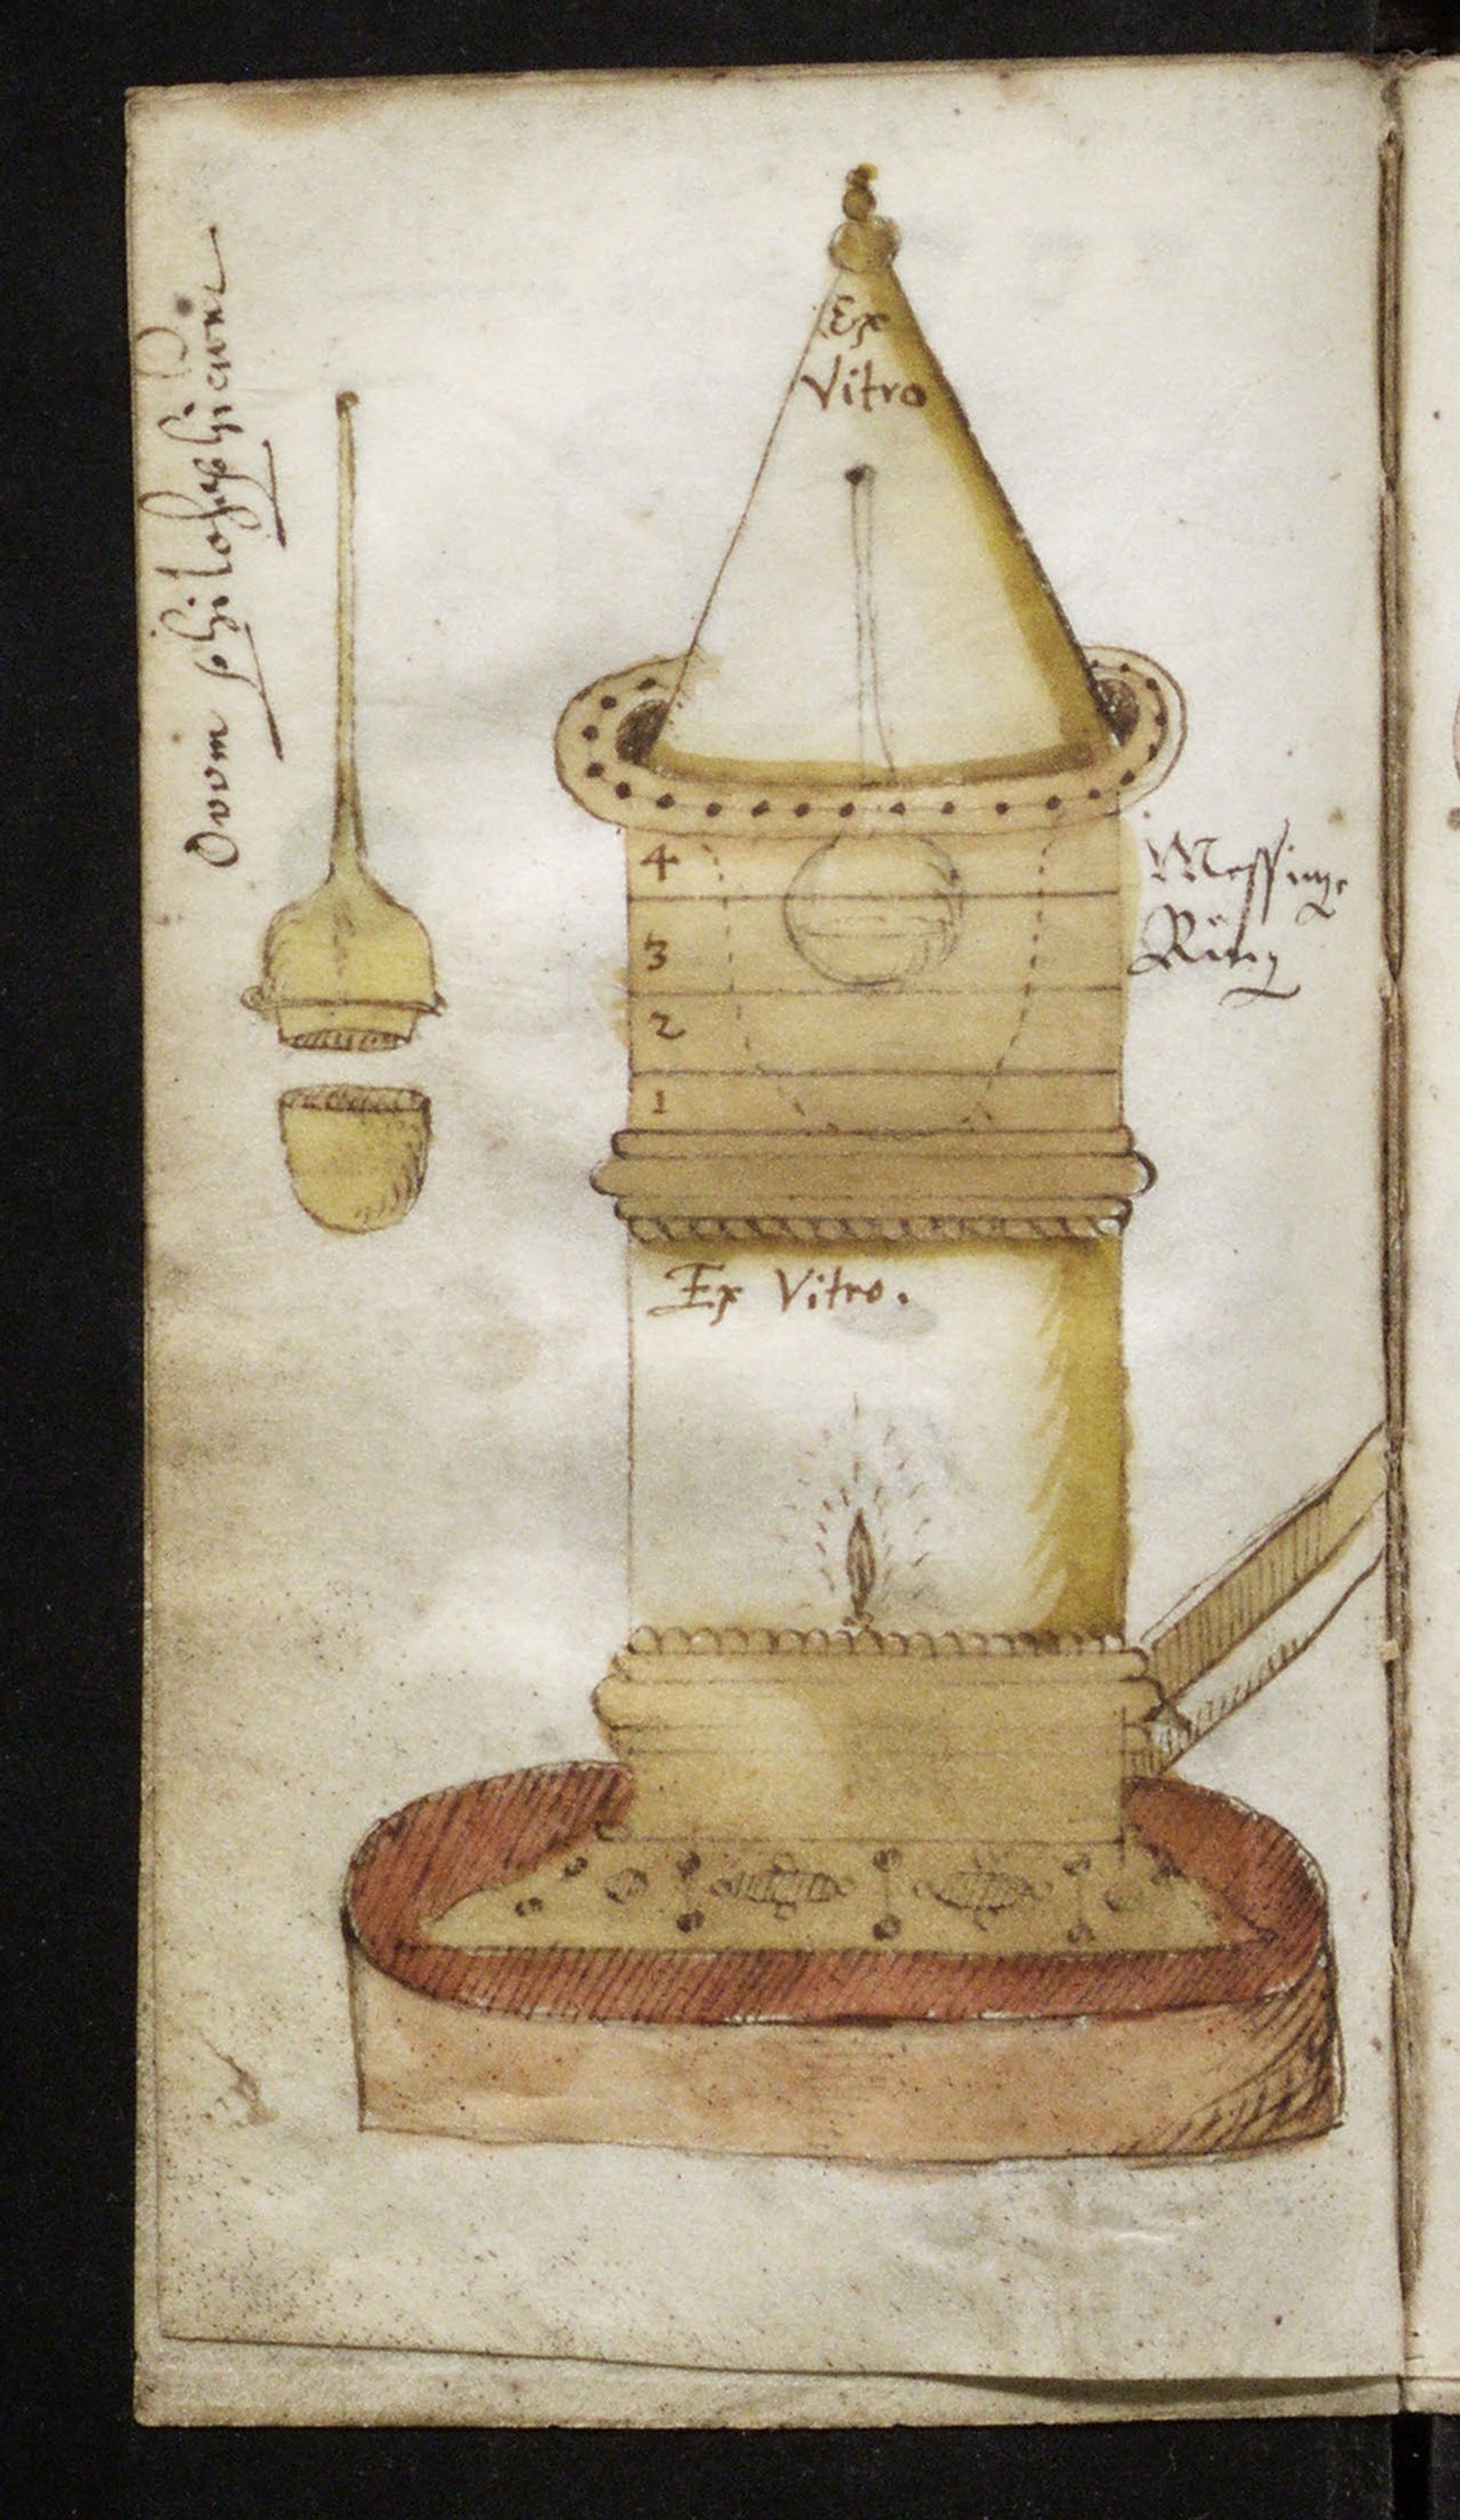 Ovom philosophicum
Ex
Vitro
4
3
2
1
Messinge
Ring
Ex Vitro.